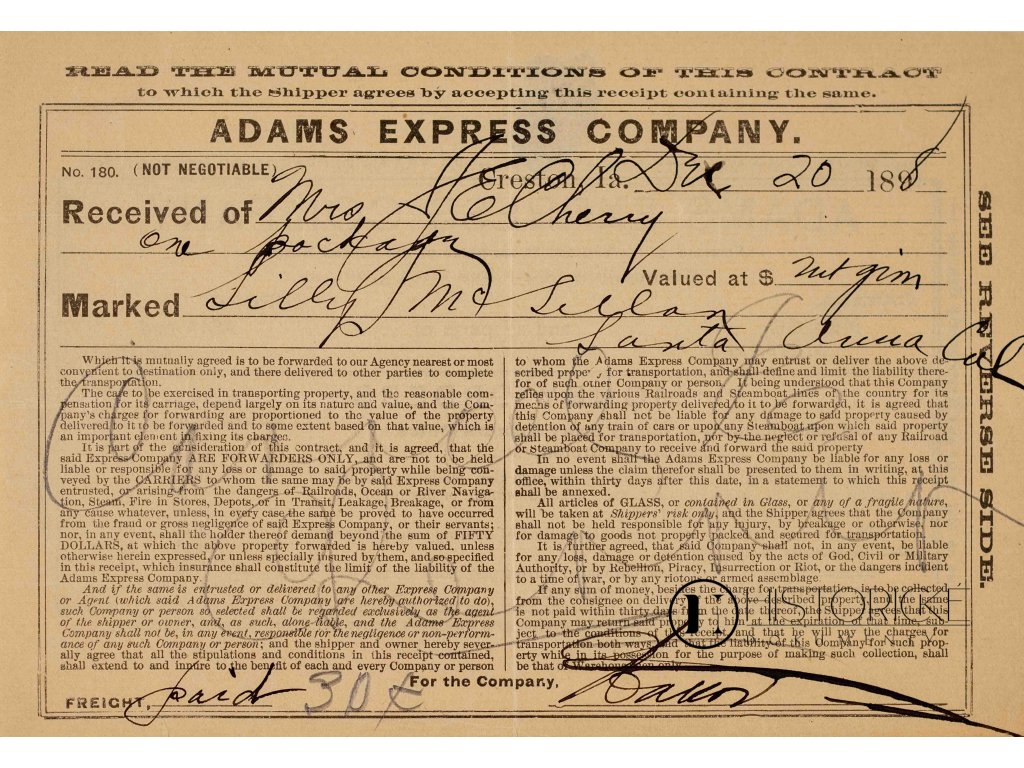 READ THE MUTUAL CONDITIONS OF THIS CONTRACT
to which the Shipper agrees by accepting this receipt containing the same.
ADAMS EXPRESS COMPANY.
No. 180. (NOT NEGOTIABLE)
Creston, Ia. Dec 20 1898
Received of Mrs J E Cherry
one package
Valued at $ not givn
Marked Lilly Mc Lellan
Santa Anna Cal
Which it is mutually agreed is to be forwarded to our Agency nearest or most
convenient to destination only, and there delivered to other parties to complete
the transportation.
The care to be exercised in transporting property, and the reasonable com-
pensation for its carriage, depend largely on its nature and value, and the Com-
pany's charges for forwarding are proportioned to the value of the property
delivered to it to be forwarded and to some extent based on that value, which is
an important element in fixing its charges.
It is part of the consideration of this contract, and it is agreed, that the
said Express Company ARE FORWARDERS ONLY, and are not to be held
liable or responsible for any loss or damage to said property while being con-
veyed by the CARRIERS to whom the same may be by said Express Company
entrusted, or arising from the dangers of Railroads, Ocean or River Naviga-
tion, Steam, Fire in Stores, Depots, or in Transit, Leakage, Breakage, or from
any cause whatever, unless, in every case the same be proved to have occurred
from the fraud or gross negligence of said Express Company, or their servants;
nor, in any event, shall the holder thereof demand beyond the sum of FIFTY
DOLLARS, at which the above property forwarded is hereby valued, unless
otherwise herein expressed, or unless specially insured by them, and so specified
in this receipt, which insurance shall constitute the limit of the liability of the
Adams Express Company.
And if the same is entrusted or delivered to any other Express Company
or Agent (which said Adams Express Company are hereby authorized to do),
such Company or person so selected shall be regarded exclusively as the agent
of the shipper or owner, and, as such, alone liable, and the Adams Express
Company shall not be, in any event, responsible for the negligence or non-perform-
ance of any such Company or person; and the shipper and owner hereby sever-
ally agree that all the stipulations and conditions in this receipt contained,
shall extend to and inure to the benefit of each and every Company or person
to whom the Adams Express Company may entrust or deliver the above de-
scribed property for transportation, and shall define and limit the liability there-
for of such other Company or person. It being understood that this Company
relies upon the various Railroads and Steamboat lines of the country for its
means of forwarding property delivered to it to be forwarded, it is agreed that
this Company shall not be liable for any damage to said property caused by
detention of any train of cars or upon any Steamboat upon which said property
shall be placed for transportation, nor by the neglect or refusal of any Railroad
or Steamboat Company to receive and forward the said property
In no event shall the Adams Express Company be liable for any loss or
damage unless the claim therefor shall be presented to them in writing, at this
office, within thirty days after this date, in a statement to which this receipt
shall be annexed.
All articles of GLASS, or contained in Glass, or any of a fragile nature,
will be taken at Shippers' risk only, and the Shipper agrees that the Company
shall not be held responsible for any injury, by breakage or otherwise, nor
for damage to goods not properly packed and secured for transportation.
It is further agreed, that said Company shall not, in any event, be liable
for any loss, damage or detention caused by the acts of God, Civil or Military
Authority, or by Rebellion, Piracy, Insurrection or Riot, or the dangers incident
to a time of war, or by any riotous or armed assemblage.
If any sum of money, besides the charge for transportation, is to be collected
from the consignee on delivery of the above described property, and the same
is not paid within thirty days from the date thereof, the Shipper agrees that this
Company may return said property to him at the expiration of that time, sub-
ject to the conditions of this receipt, and that he will pay the charges for
transportation both ways, and that the liability of this Company for such prop-
erty while in its possession for the purpose of making such collection, shall
be that of Warehousemen only.
FREIGHT, paid 30¢
For the Company,
SEE REVERSE SIDE.
E
ESTORINE